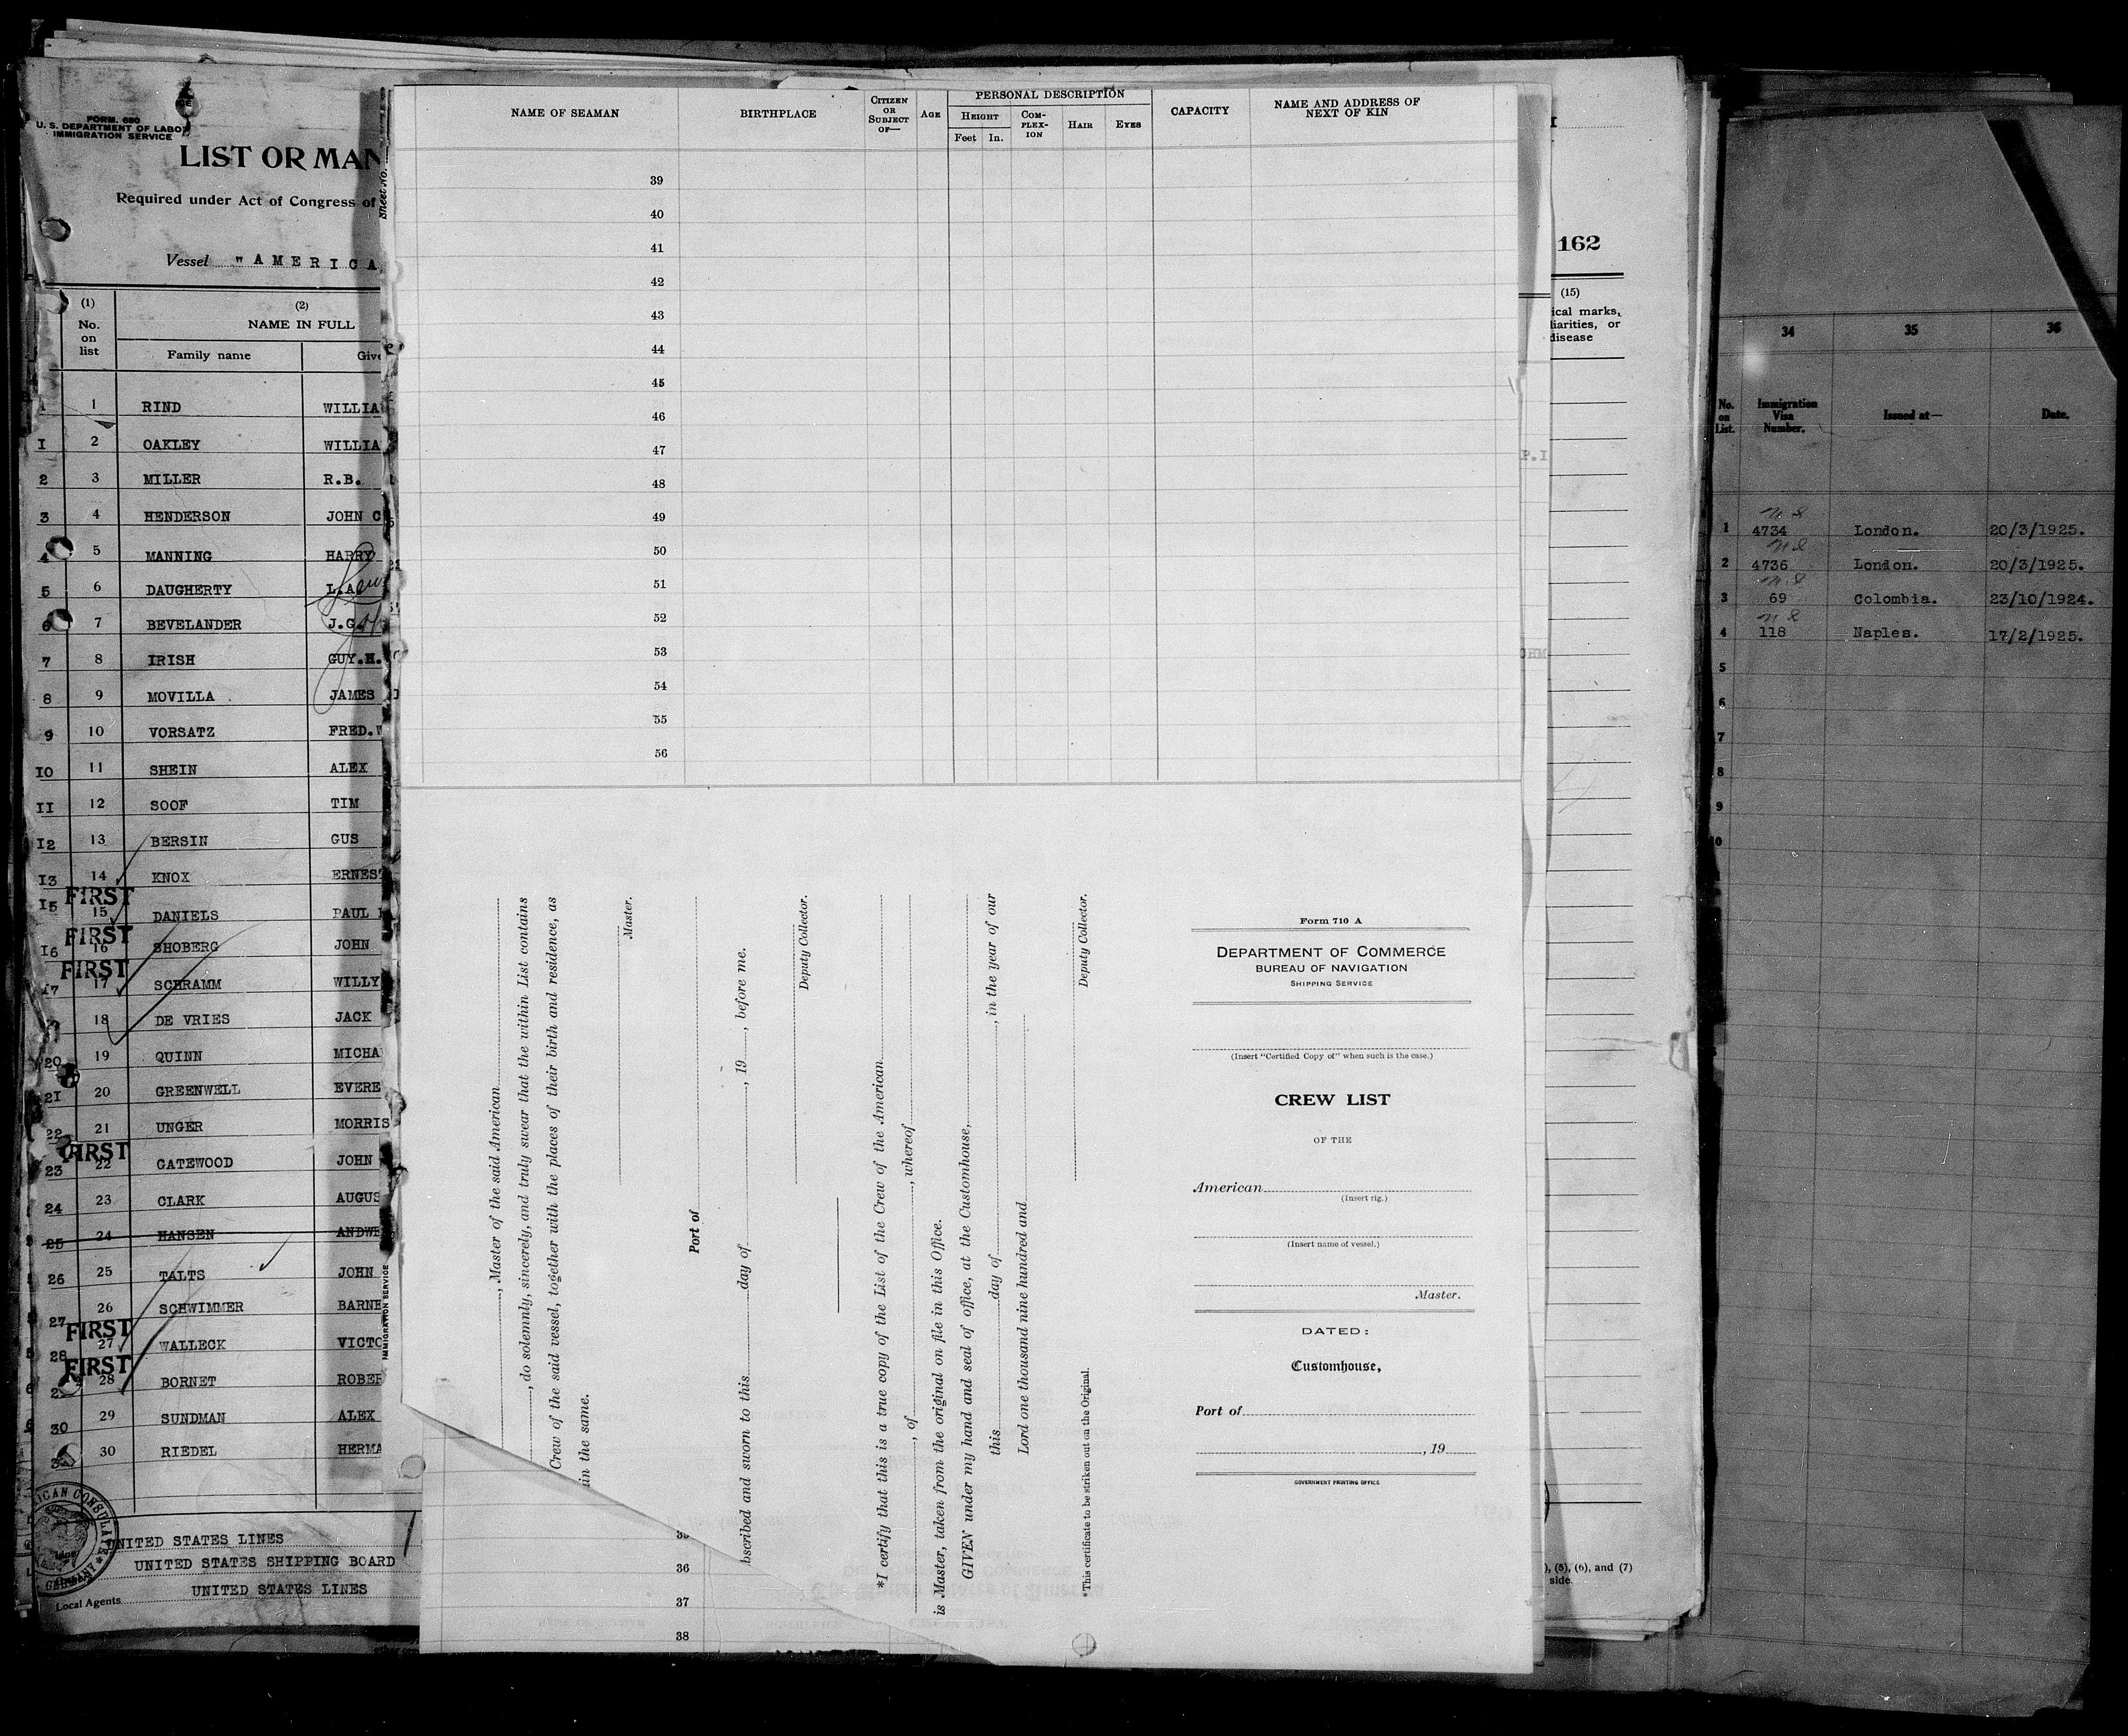 FORM. 680
U. S. DEPARTMENT OF LABOR
IMMIGRATION SERVICE
LIST OR MAN
Required under Act of Congress of
Vessel "AMERICA
(1) (2)
No. on list
NAME IN FULL
Family name Give
1 RIND WILLIA
I 2 OAKLEY WILLIA
2 3 MILLER R.B.
3 4 HENDERSON JOHN C
4 5 MANNING HARRY
5 6 DAUGHERTY L.A.
6 7 BEVELANDER J.G.
7 8 IRISH GUY.H.
8 9 MOVILLA JAMES
9 10 VORSATZ FRED.W
IO 11 SHEIN ALEX
II 12 SOOF TIM
I2 13 BERSIN GUS
I3 14 KNOX ERNEST
FIRST
I5 15 DANIELS PAUL
FIRST
I6 16 SHOBERG JOHN
FIRST
I7 17 SCHRAMM WILLY
18 DE VRIES JACK
20 19 QUINN MICHA
21 20 GREENWELL EVERE
22 21 UNGER MORRIS
FIRST
23 22 GATEWOOD JOHN
24 23 CLARK AUGUS
25 24 HANSEN ANDWE
26 25 TALTS JOHN
27 26 SCHWIMMER BARNE
FIRST
28 27 WALLECK VICTO
FIRST
28 BORNET ROBER
30 29 SUNDMAN ALEX
30 RIEDEL HERMA
UNITED STATES LINES
UNITED STATES SHIPPING BOARD
UNITED STATES LINES
Local Agents
Sheet No.
IMMIGRATION SERVICE
NAME OF SEAMAN
BIRTHPLACE
CITIZEN OR SUBJECT OF—
AGE
PERSONAL DESCRIPTION
HEIGHT
Feet In.
COM-PLEX-ION
HAIR
EYES
CAPACITY
NAME AND ADDRESS OF
NEXT OF KIN
39
40
41
42
43
44
45
46
47
48
49
50
51
52
53
54
55
56
, Master of the said American
, do solemnly, sincerely, and truly swear that the within List contains
Crew of the said vessel, together with the places of their birth and residence, as
in the same.
Master.
Port of
bscribed and sworn to this day of , 19 , before me.
Deputy Collector.
*I certify that this is a true copy of the List of the Crew of the American
, of , whereof
is Master, taken from the original on file in this Office.
GIVEN under my hand and seal of office, at the Customhouse,
this day of , in the year of our
Lord one thousand nine hundred and
Deputy Collector.
*This certificate to be striken out on the Original.
Form 710 A
DEPARTMENT OF COMMERCE
BUREAU OF NAVIGATION
SHIPPING SERVICE
(Insert "Certified Copy of" when such is the case.)
CREW LIST
OF THE
American
(Insert rig.)
(Insert name of vessel.)
Master.
DATED:
Customhouse,
Port of
, 19
GOVERNMENT PRINTING OFFICE
36
37
38
162
(15)
ical marks,
liarities, or
disease
P.I
OHM
), (5), (6), and (7)
side.
34 35 36
No. on List.
Immigration Visa Number.
Issued at—
Date.
1 4734 London. 20/3/1925.
2 4736 London. 20/3/1925.
3 69 Colombia. 23/10/1924.
4 118 Naples. 17/2/1925.
5
6
7
8
9